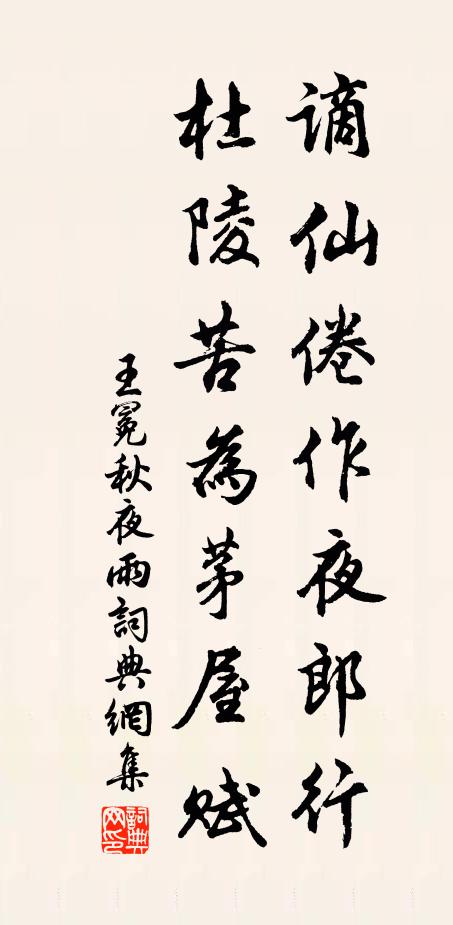 謫仙倦作夜郎行
杜陵苦為茅屋賦
王冕秋夜雨詞典網集
詞典网印